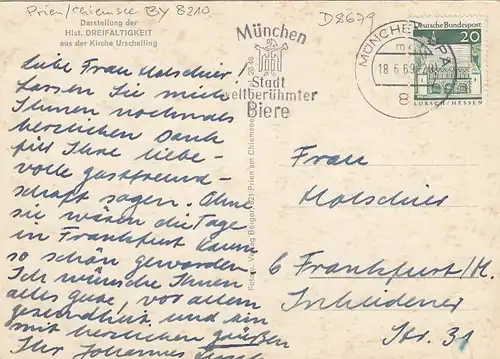 Prien/Chiemsee BY 8210
D8679
Darstellung der
Hlst. DREIFALTIGKEIT
aus der Kirche Urschalling
Liebe Frau Holschier!
Lassen Sie mich
Ihnen nochmals
herzlichen Dank
für Ihre liebe-
volle Gastfreund-
schaft sagen. Ohne
sie wären die Tage
in Frankfurt kaum
so schön geworden.
Ich wünsche Ihnen
alles Gute, vor allem
Gesundheit und bin
mit herzlichen Grüßen
Ihr Johannes
München
Stadt
weltberühmter
Biere
MÜNCHEN
18.6.69
8
Deutsche Bundespost
20
LORSCH/HESSEN
Verlag Berger, 821 Prien am Chiemsee
Frau
Holschier
6 Frankfurt/M.
Str. 31